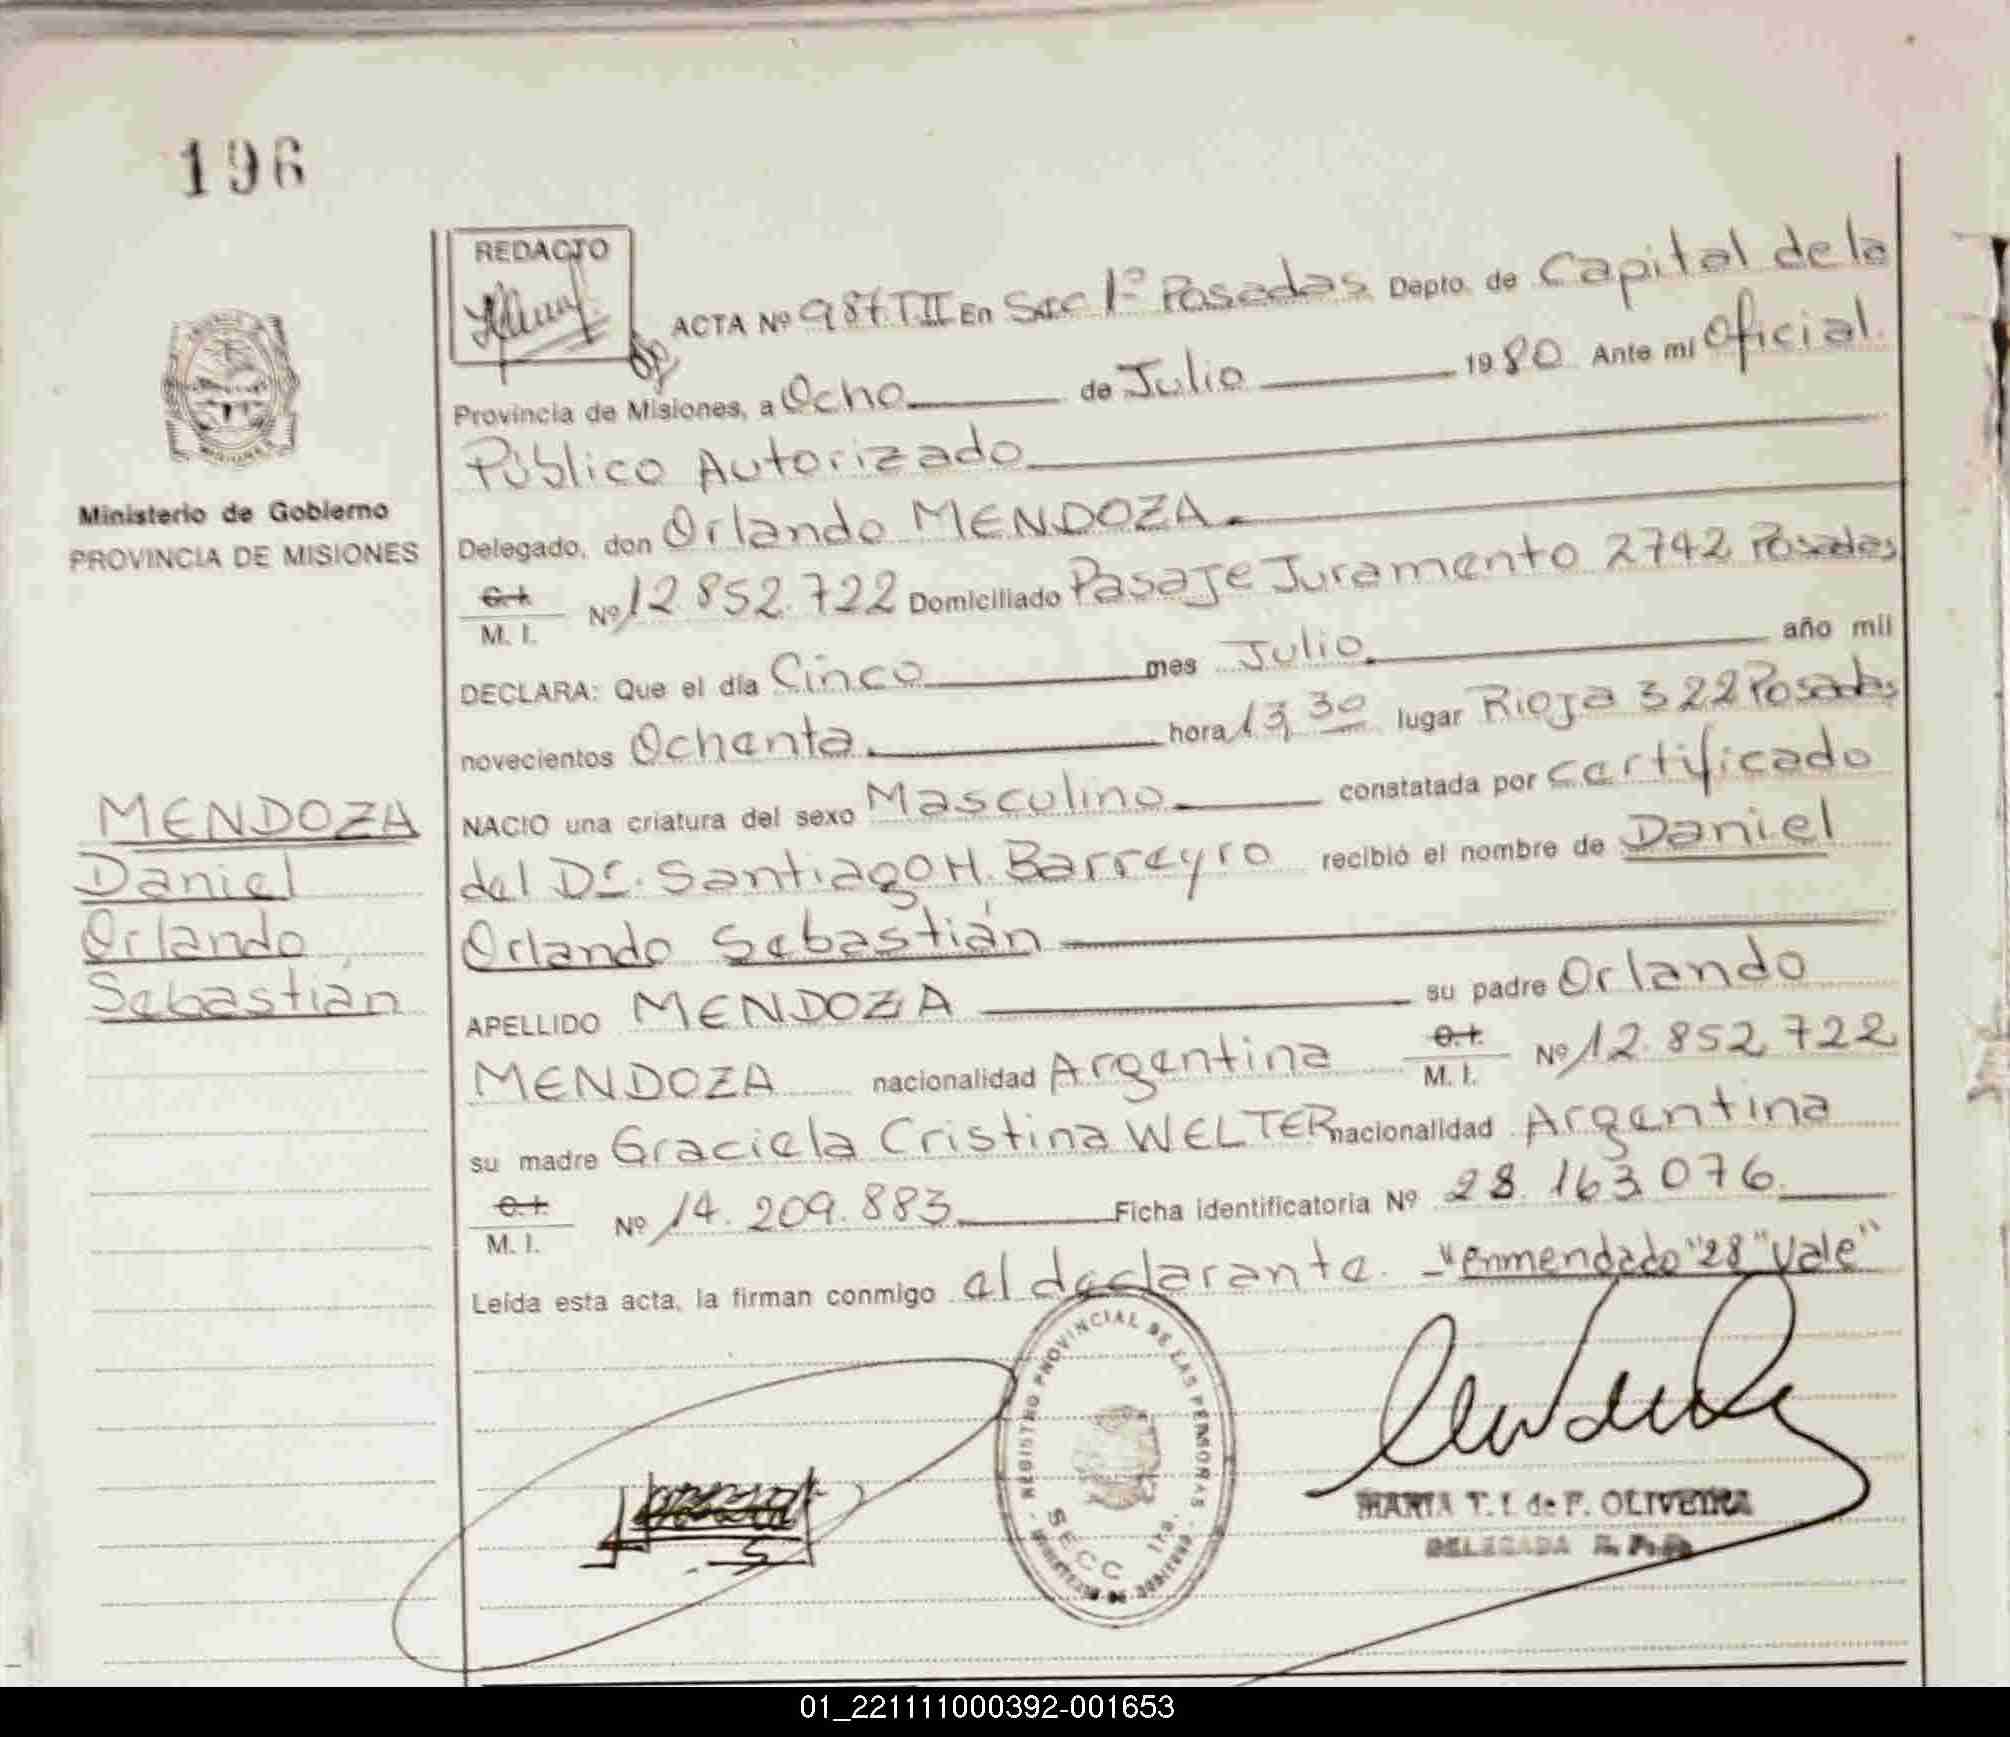 196
REDACTO
ACTA Nº 987 TII En Sec 1º Posadas Depto. de Capital de la
Provincia de Misiones, a Ocho de Julio 1980 Ante mi Oficial
Público Autorizado
Ministerio de Gobierno
PROVINCIA DE MISIONES
Delegado, don Orlando MENDOZA
C.I.
M. I. Nº 12.852.722 Domiciliado Pasaje Juramento 2742 Posadas
DECLARA: Que el día Cinco mes Julio año mil
novecientos Ochenta hora 13,30 lugar Rioja 322 Posadas
NACIO una criatura del sexo Masculino constatada por Certificado
del Dr. Santiago H. Barreyro recibió el nombre de Daniel
Orlando Sebastián
MENDOZA
Daniel
Orlando
Sebastián
APELLIDO MENDOZA su padre Orlando
MENDOZA nacionalidad Argentina C.I. M. I. Nº 12.852.722
su madre Graciela Cristina WELTER nacionalidad Argentina
C.I.
M. I. Nº 14.209.883 Ficha identificatoria Nº 28.163.076
Leída esta acta, la firman conmigo el declarante. - "enmendado "28" Vale"
REGISTRO PROVINCIAL DE LAS PERSONAS
SECC 1ra.
MINISTERIO DE GOBIERNO
MARIA T. I. de F. OLIVEIRA
DELEGADA R. P. P.
01_221111000392-001653